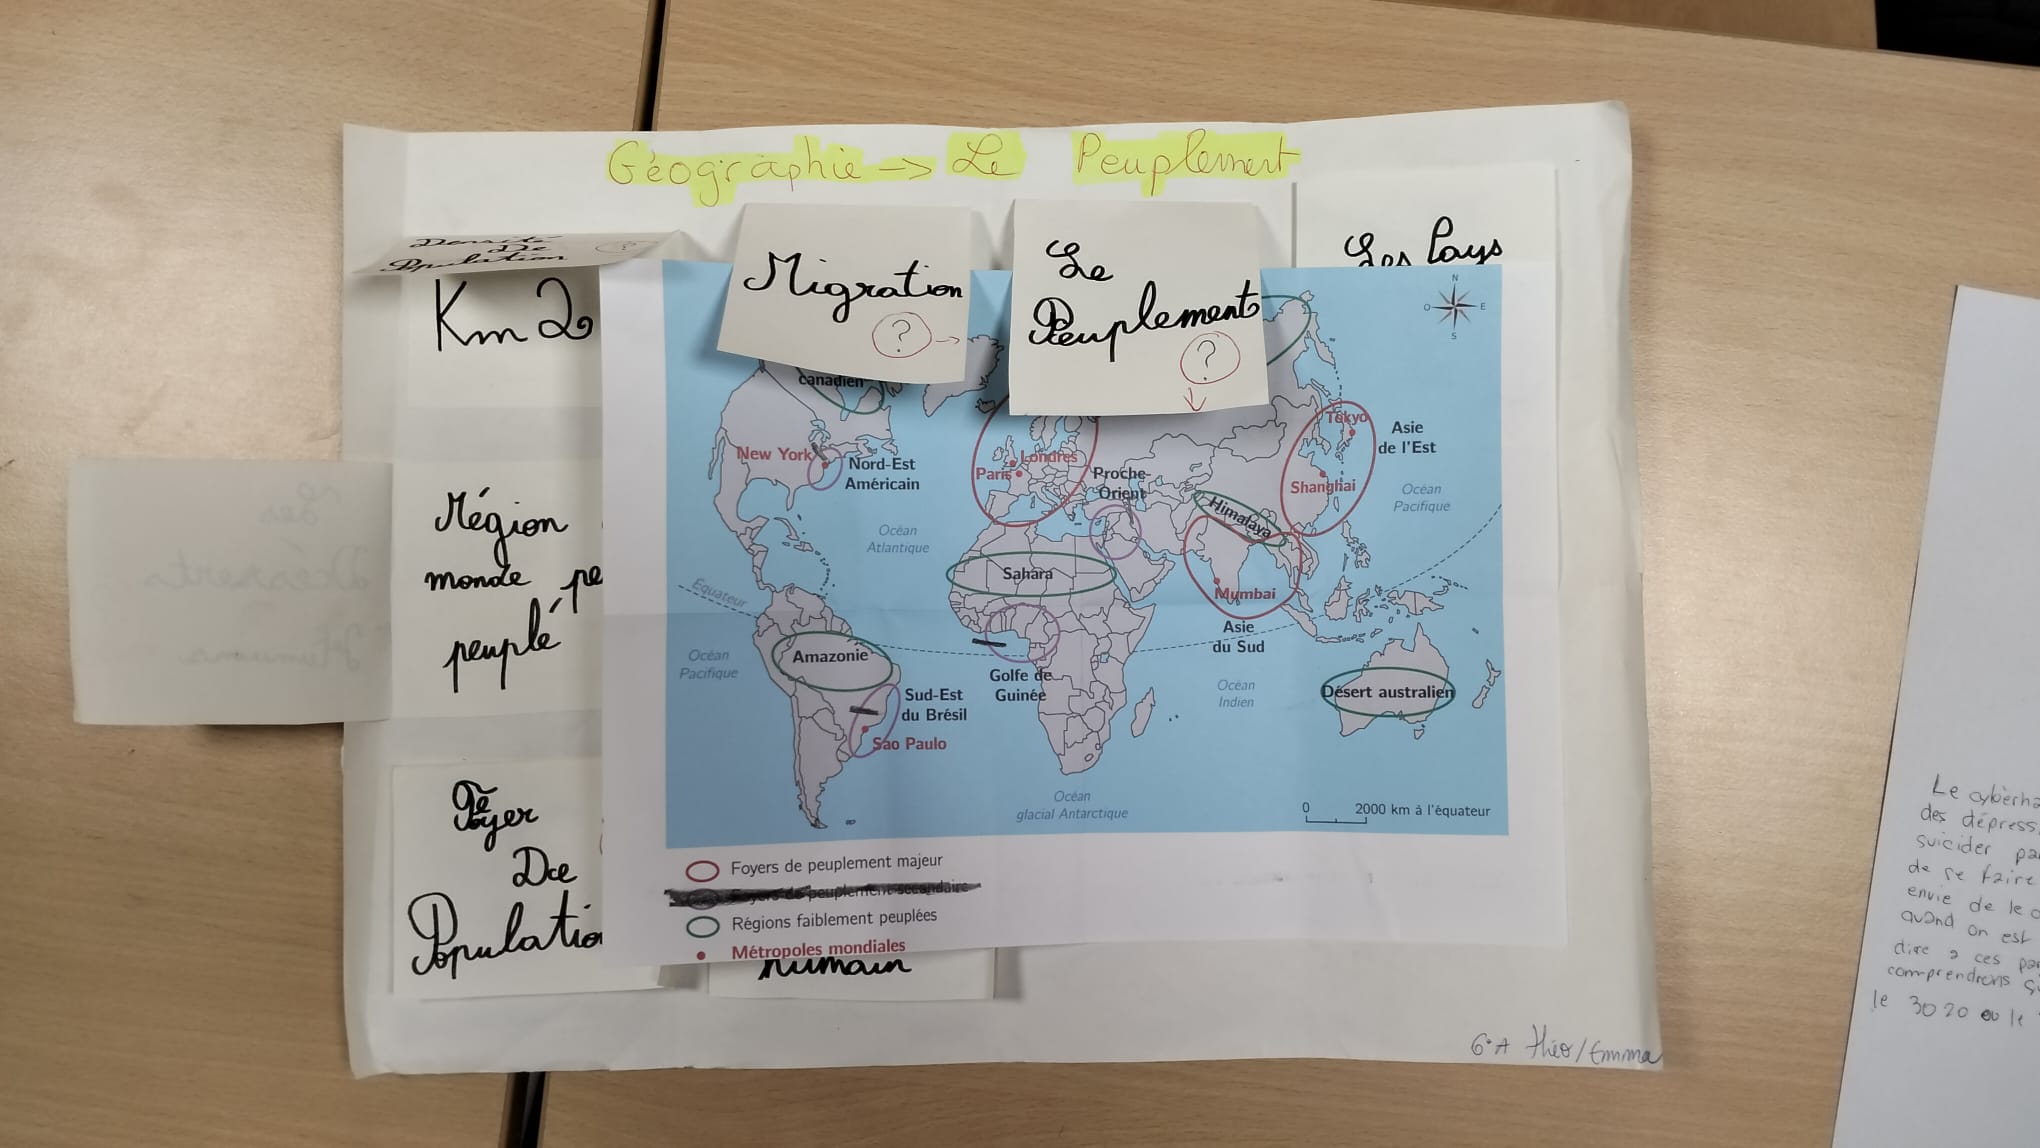 Géographie -> Le Peuplement
Densité
De
Population ?
Km2
Migration
?
Le
Peuplement
?
Les Pays
N
O E
S
canadien
New York
Nord-Est
Américain
Paris
Londres
Proche-
Orient
Tokyo
Asie
de l'Est
Shanghai
Océan
Pacifique
Océan
Atlantique
Himalaya
Sahara
Mumbai
Asie
du Sud
Équateur
Amazonie
Océan
Pacifique
Sud-Est
du Brésil
Sao Paulo
Golfe de
Guinée
Océan
Indien
Désert australien
Océan
glacial Antarctique
0 2000 km à l'équateur
Foyers de peuplement majeur
Foyers de peuplement secondaire
Régions faiblement peuplées
Métropoles mondiales
Les
Déserts
Humains
Région
monde pe
peuplé
Foyer
De
Population
humain
6°A Théo/Emma
Le cyberha
des dépress
suicider pa
de se faire
envie de le
quand on est
dire a ces
comprendrons
le 3020 ou le